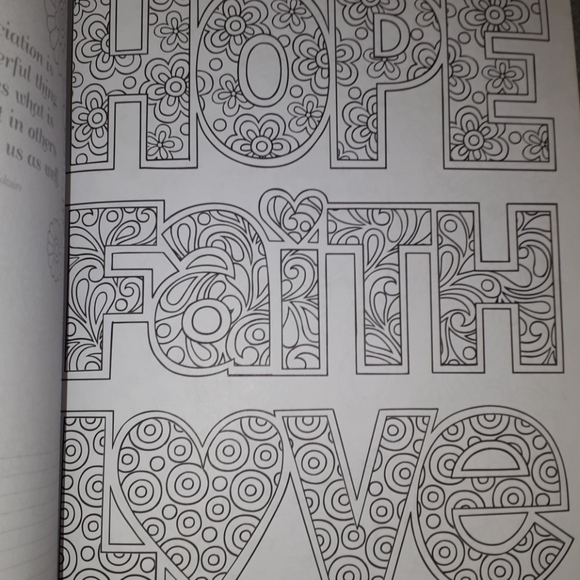 ciation is
erful thing
es what is
in others
us as well
HOPE
FaiTH
LOVe